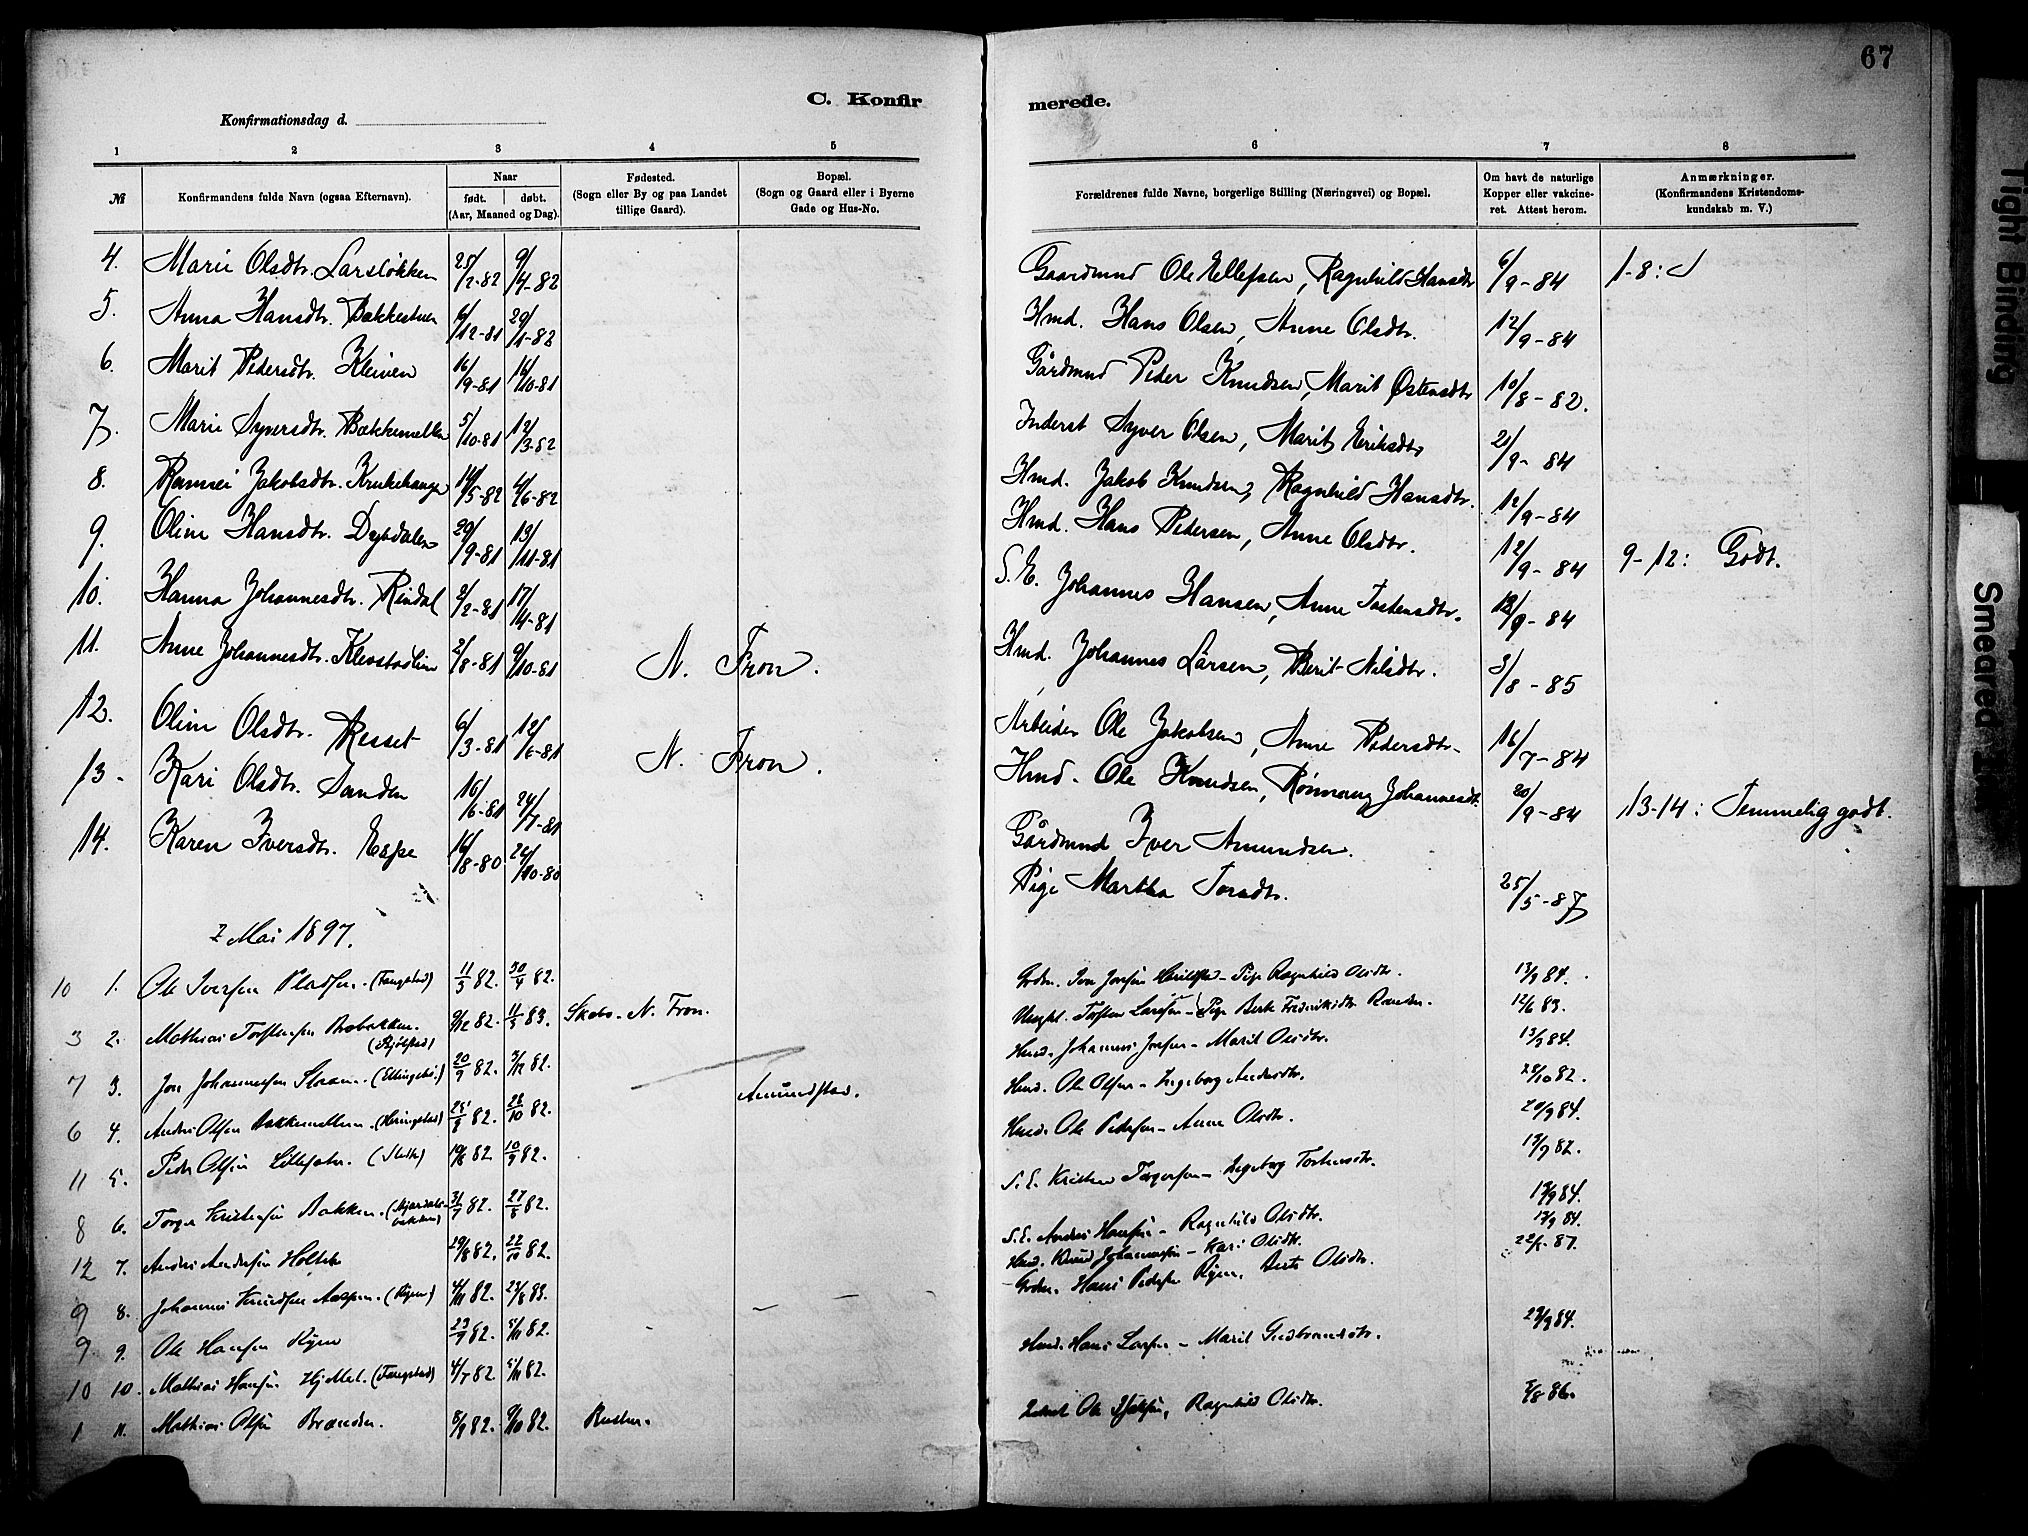 67
C. Konfir
merede.
Konfirmationsdag d.
1 2 3 4 5 6 7 8
№
Konfirmandens fulde Navn (ogsaa Efternavn).
Naar
født. døbt.
(Aar, Maaned og Dag).
Fødested.
(Sogn eller By og paa Landet
tillige Gaard).
Bopæl.
(Sogn og Gaard eller i Byerne
Gade og Hus-No.
Forældrenes fulde Navne, borgerlige Stilling (Næringsvei) og Bopæl.
Om havt de naturlige
Kopper eller vakcine-
ret. Attest herom.
Anmærkninger.
(Konfirmandens Kristendoms-
kundskab m. V.)
4. Marie Olsdtr. Larsløkken 25/2-82 9/4-82 Gaardmnd Ole Ellefsen, Ragnhild Hansdtr 6/9-84 1-8:
5. Anna Hansdtr. Bakkestuen 6/12-81 29/1-82 Hmd. Hans Olsen, Anne Olsdtr. 12/9-84
6. Marit Pedersdtr. Kleiven 16/9-81 16/10-81 Gårdmnd Peder Knudsen, Marit Østensdtr 10/8-82.
7. Marie Syversdtr. Bakkemellen 5/10-81 12/3-82 Inderst Syver Olsen, Marit Eriksdtr 21/9-84
8. Jakobsdtr. Krukehaugen 14/5-82 4/6-82 Hmd. Jakob Knudsen, Ragnhild Hansdtr. 12/9-84
9. Oline Hansdtr. Dybdalen 29/9-81 13/11-81 Hmd. Hans Pedersen, Anne Olsdtr. 12/9-84 9-12: Godt.
10. Hanna Johannesdtr. Rindal 2/2-81 17/4-81 S. E. Johannes Hansen, Anne Tostensdtr. 12/9-84
11. Anne Johannesdtr. 2/8-81 9/10-81 N. Fron. Hmd. Johannes Larsen, Berit Nilsdtr. 3/8-85
12. Oline Olsdtr. Resset 6/3-81 12/6-81 Arbeider Ole Jakobsen, Anne Pedersdtr- 16/7-84
13- Kari Olsdtr. Sanden 16/6-81 24/7-81 N. Fron. Hmd. Ole Knudsen, Rønnaug Johannesdt. 20/9-84 13-14: Temmelig godt.
14. Karen Iversdtr. Espe 16/8-80 24/10-80 Gårdmnd Iver Amundsen.
Pige Martha Torsdtr. 25/5-87
2 Mai 1897.
10 1. Ole Iversen Pladsen. (Fangstad) 11/3 82. 30/4 82. Ragnhild Olsdtr. 13/9 84.
3 2. Mathias Torstensen 9/12 82. 11/3 83. N. Fron. Torsten Larsen - Pige Berte Frederiksdtr 12/6 83.
7 3. Jon Johannesen 20/9 82. 3/12 82. Hmd. Johannes Jonsen - Marit Olsdtr. 13/9 84.
6 4. Anders Olsen Bakkemellem. 25/9 82. 28/10 82. Amundstad. Hmd. Ole Olsen - Ingeborg Andersdtr. 28/10 82.
11 5. Peder Olsen 19/8 82 10/9 82. Hmd. Ole Pedersen - Anne Olsdtr. 20/9 84.
8 6. Torger Kristensen Bakken. 31/7 82. 27/8 82. S. E. Kristen Torgersen - Ingeborg Tostensdtr. 13/9 82.
12 7. Anders Andersen 29/8 82. 22/10 82. S. E. Anders Hansen - Ragnhild Olsdtr. 13/9 84.
9 8. Johannes Knudsen Aaspen. (Ryen) 4/11 82. 27/8 83. Hmd. Knud Johannesen - Kari Olsdtr. 13/9 84.
9 9. Ole Hansen Ryen 23/9 82. 5/11 82. Grdm. Hans Pedersen Ryen, Berte Olsdtr. 22/5 87.
10 10. Mathias Hansen (Fangstad) 4/7 82 5/11 82. Hmd. Hans Larsen - Marit Gudbrandsdtr. 23/9 84.
1 11. Mathias Olsen 5/9 82. 9/10 82. Ragnhild Olsdtr. 5/8 86.
Tight Binding
Smeared Ink